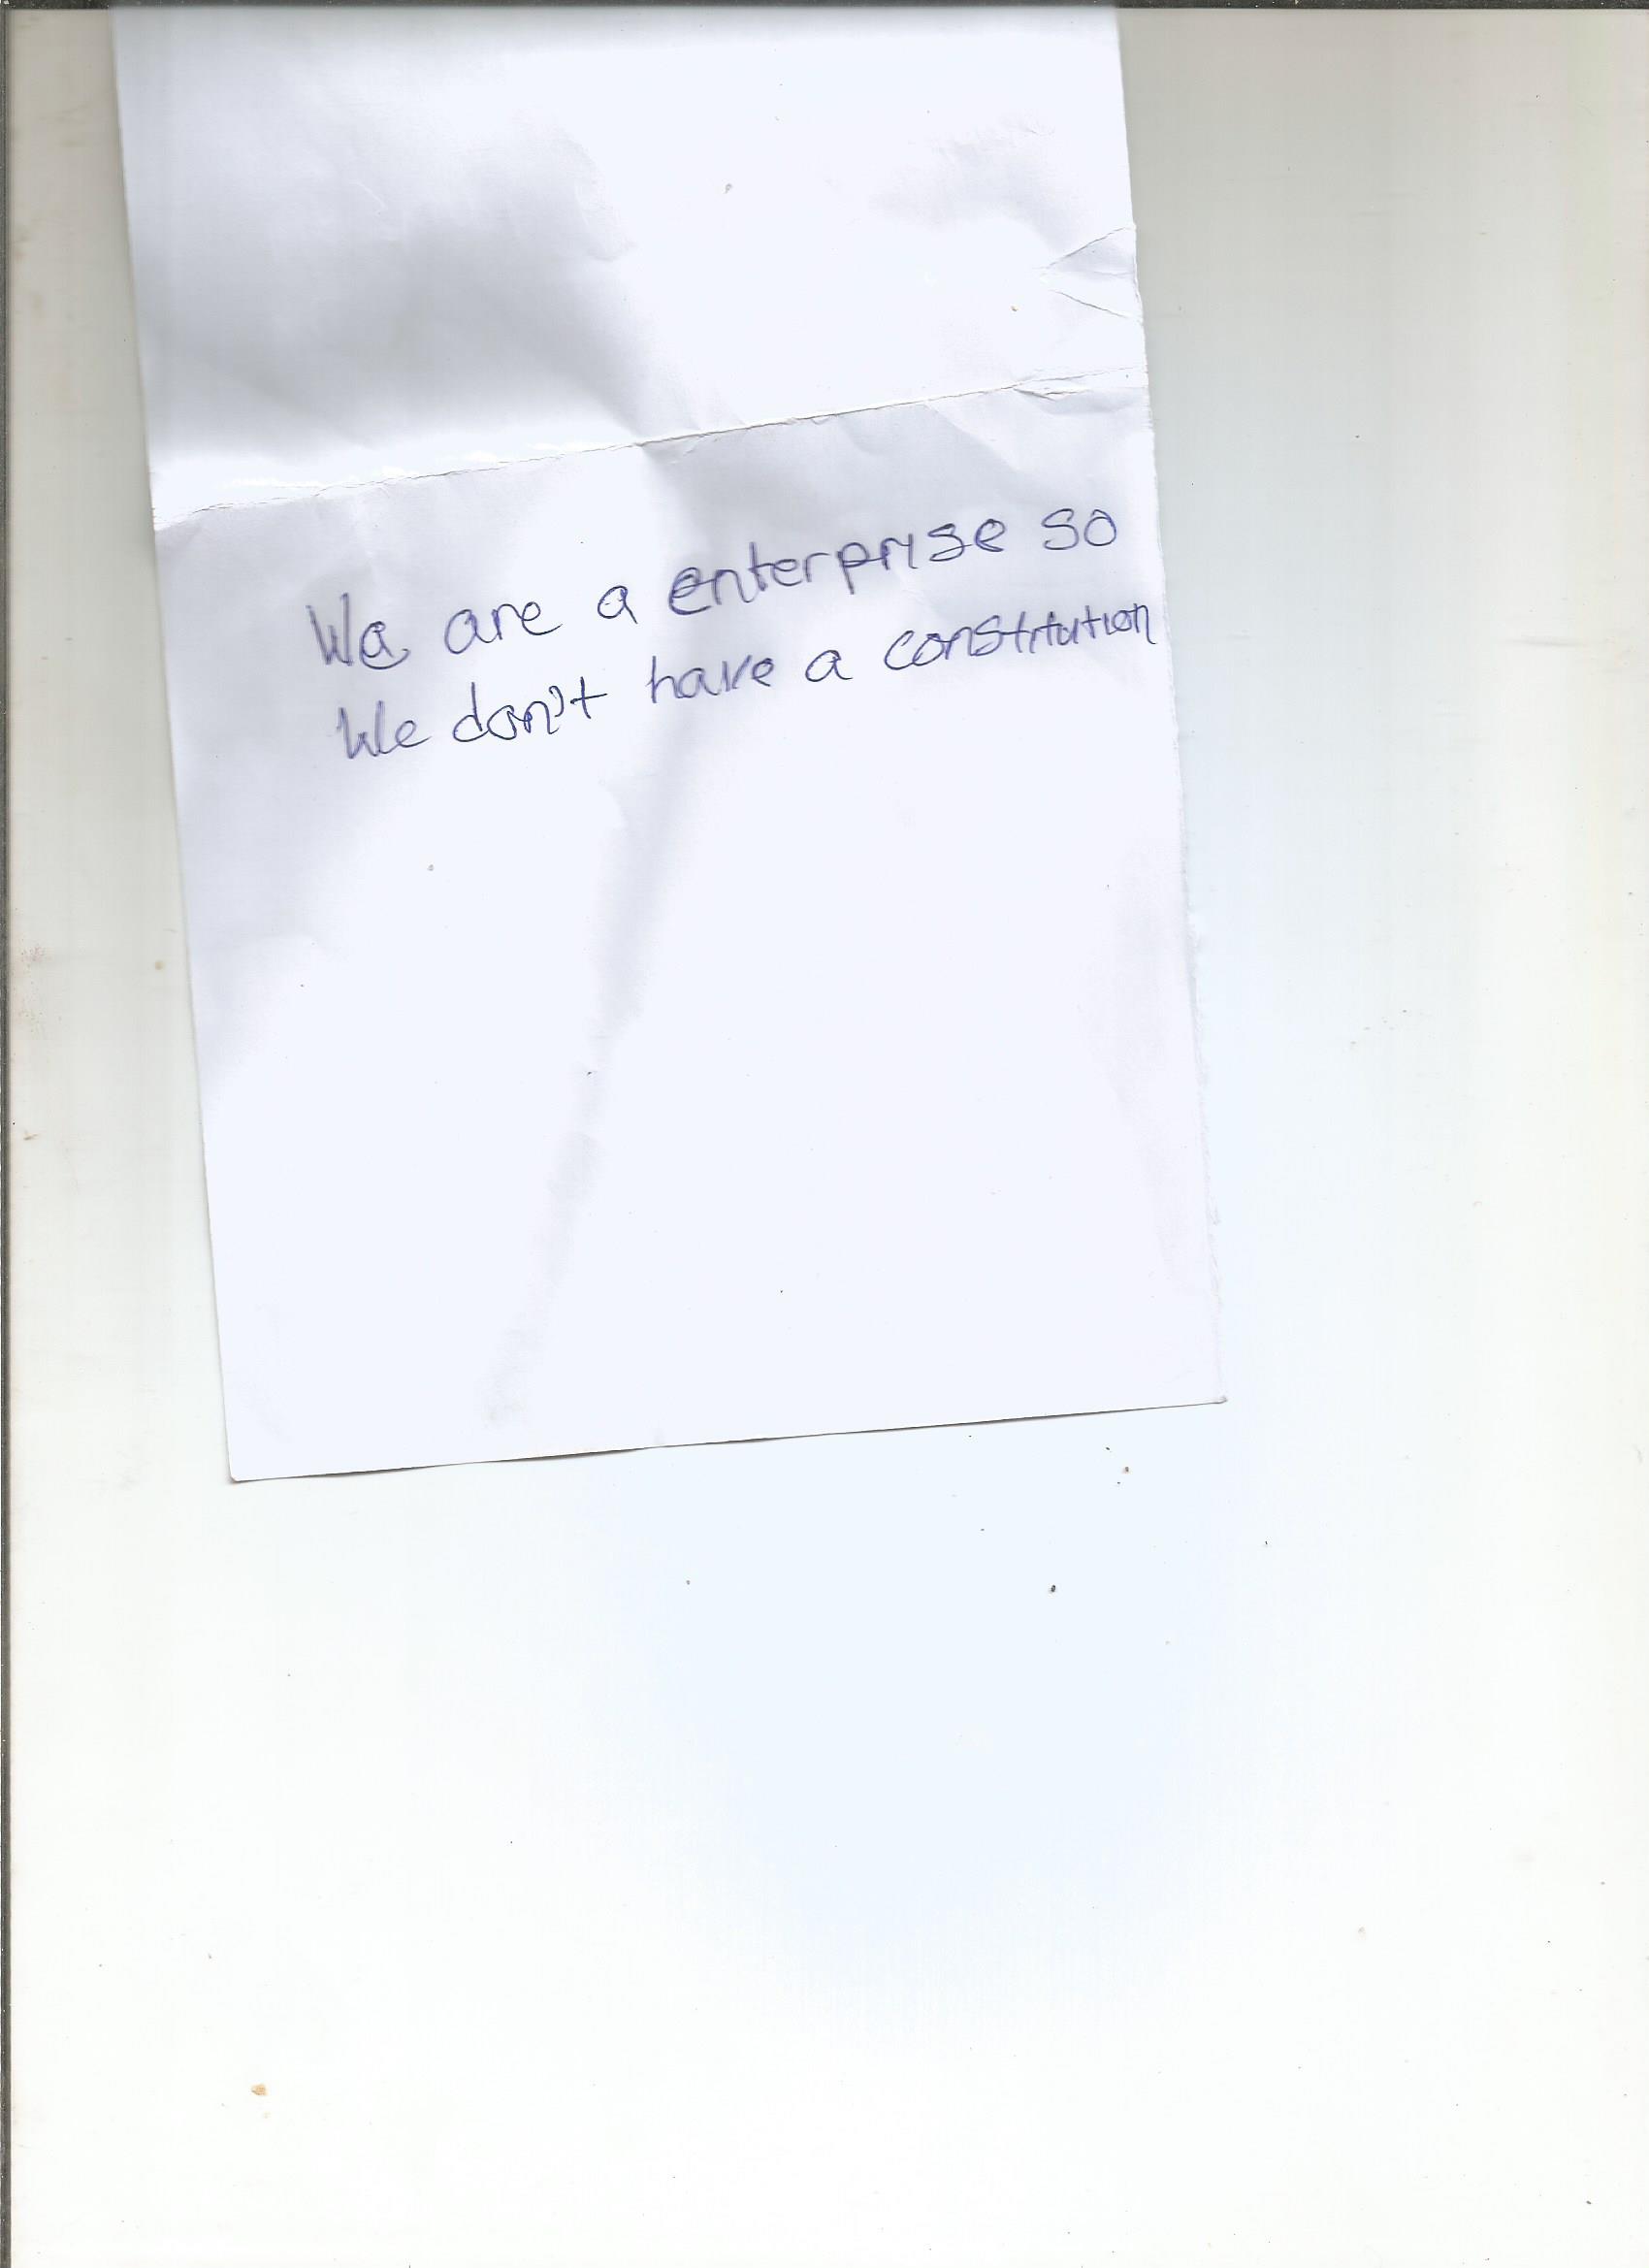 We are a enterprise so
We don't have a constitution